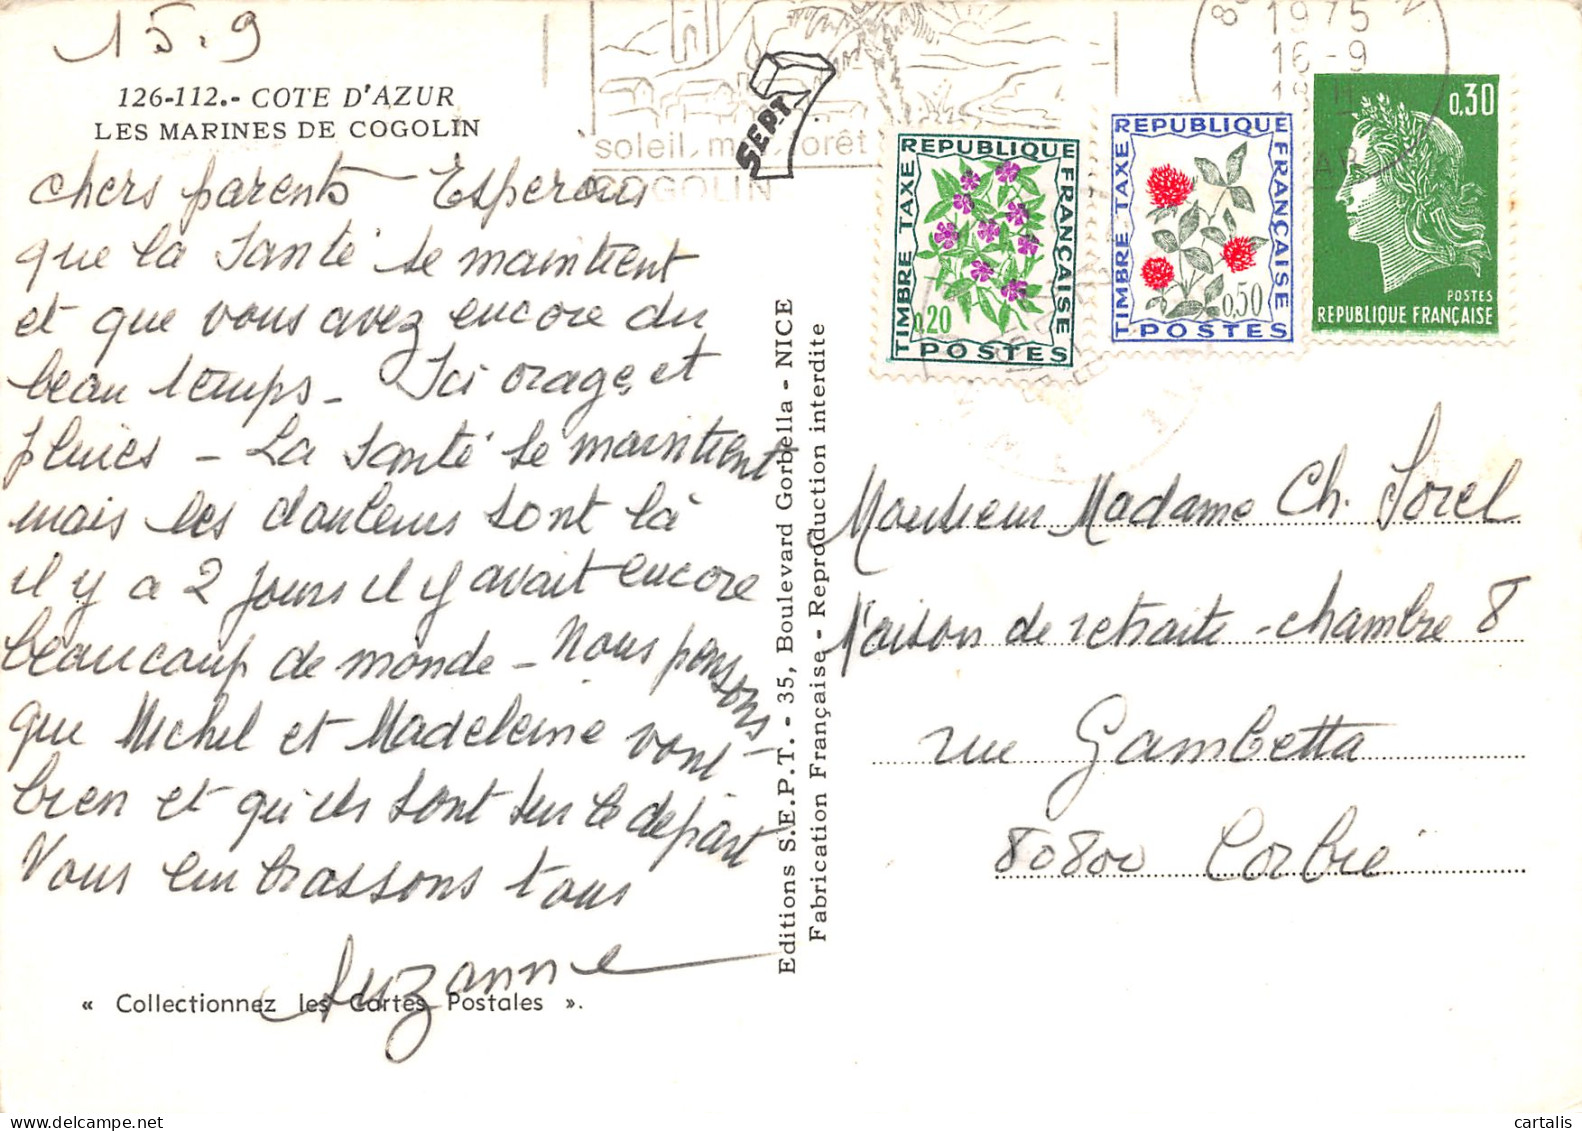 15.9
126-112.- COTE D'AZUR
LES MARINES DE COGOLIN
chers parents - Esperons
que la santé se maintient
et que vous avez encore du
beau temps - Ici orage, et
pluies - La santé se maintient
mais les douleurs sont là
il y a 2 jours il y avait encore
beaucoup de monde - Nous pensons
que Michel et Madeleine vont
bien et qu'ils sont sur le départ
Vous embrassons tous
Suzanne
« Collectionnez les Cartes Postales ».
Editions S.E.P.T. - 35, Boulevard Gorbella - NICE
Fabrication Française - Reproduction interdite
SEPT
soleil, orêt
COGOLIN
1975
16-9
REPUBLIQUE FRANÇAISE
TIMBRE TAXE
0,20
POSTES
REPUBLIQUE FRANÇAISE
TIMBRE TAXE
0,50
POSTES
0,30
POSTES
REPUBLIQUE FRANÇAISE
Monsieur Madame Ch. Sorel
Maison de retraite - chambre 8
rue Gambetta
80800 Corbie
cartalis